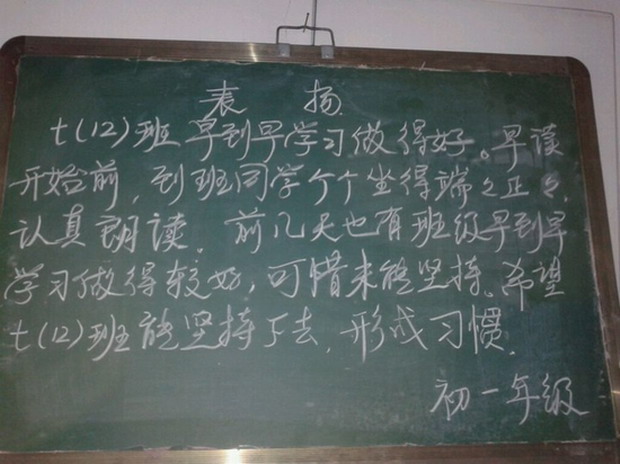 表 扬
七(12)班早到早学习做得好。早读
开始前，到班同学个个坐得端々正々，
认真朗读。前几天也有班级早到早
学习做得较好，可惜未能坚持。希望
七(12)班能坚持下去，形成习惯。
初一年级